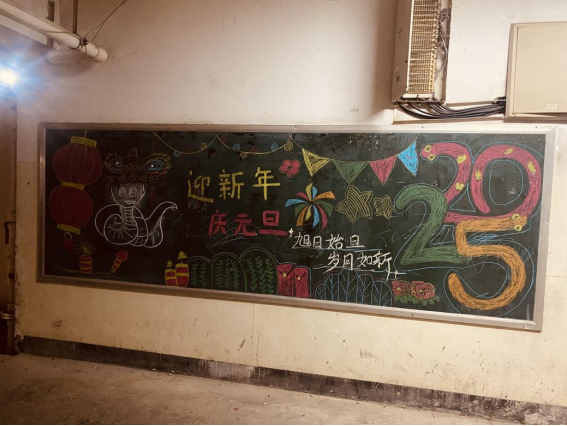 迎新年
庆元旦
旭日始旦
岁月如新
2025